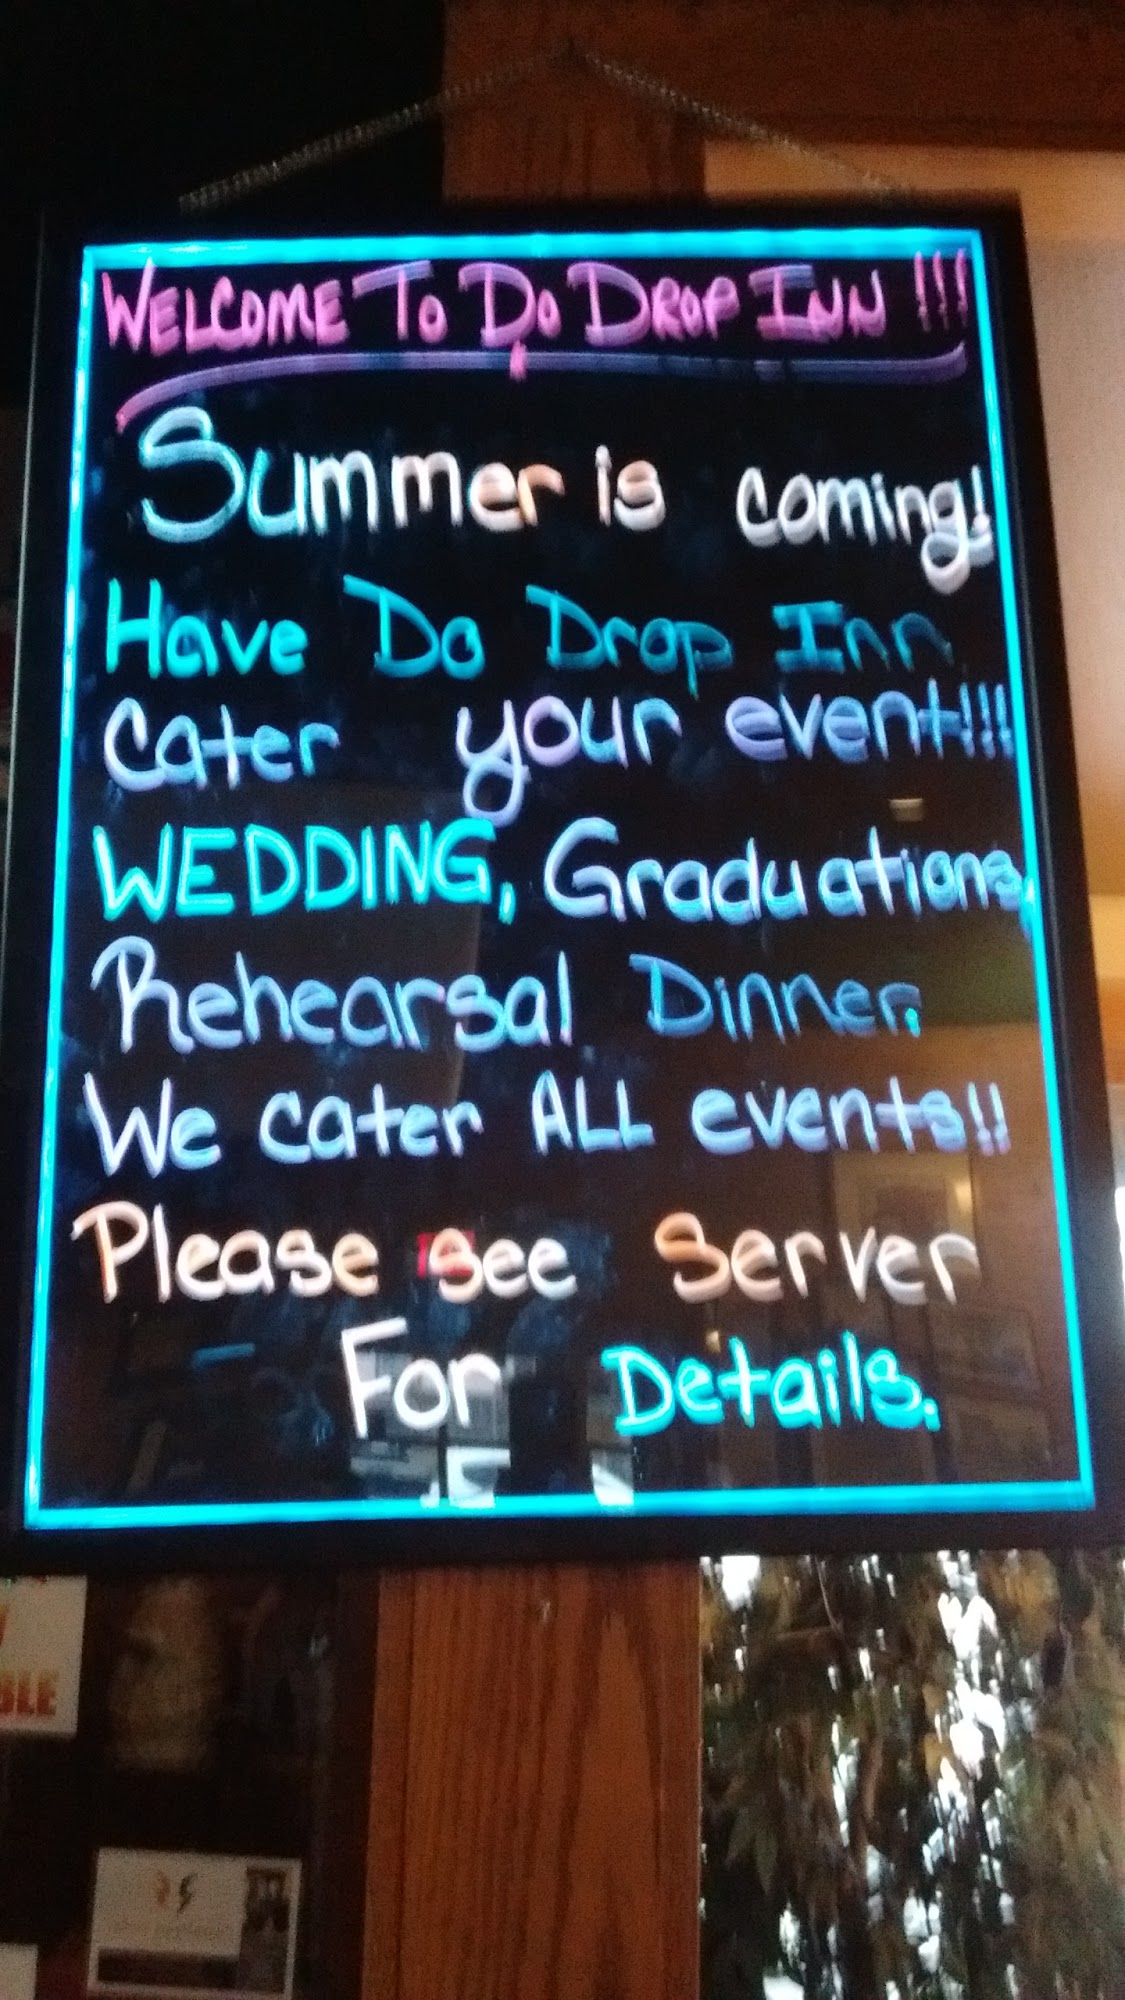 WELCOME TO DO DROP INN !!!
Summer is coming!
Have Do Drop Inn
Cater your event!!!
WEDDING, Graduations,
Rehearsal Dinner.
We cater ALL events!!
Please see server
For Details.